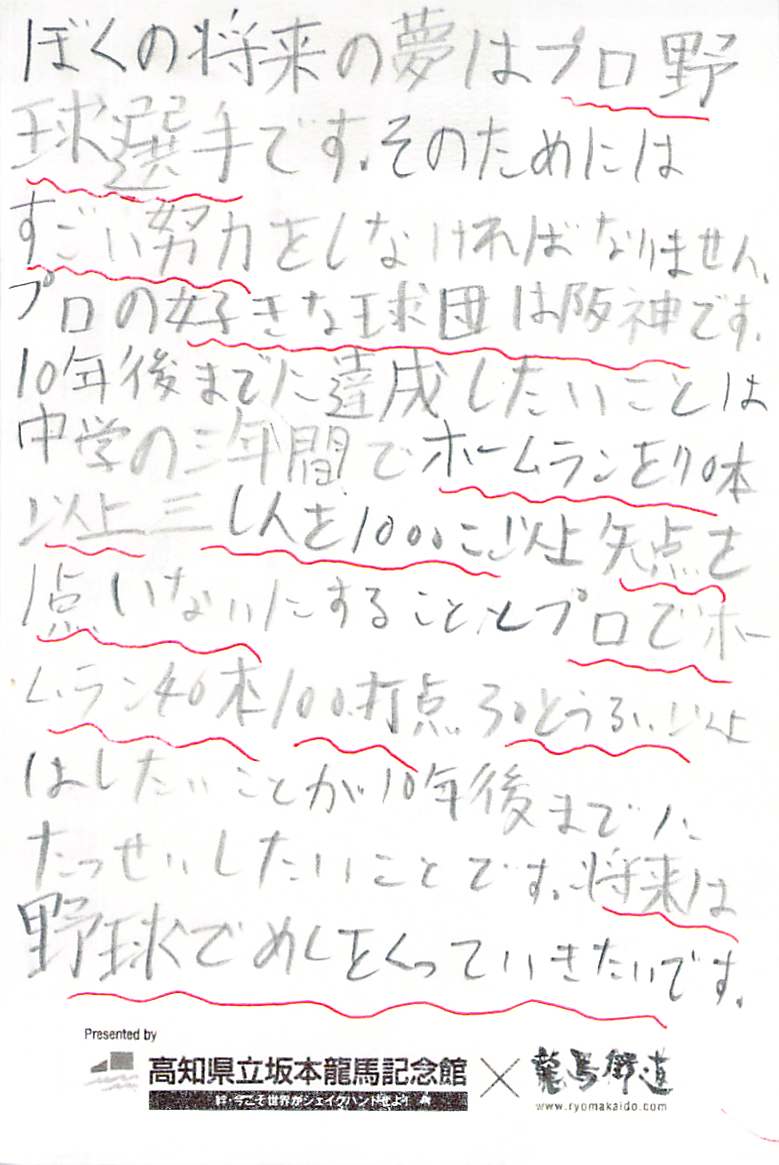 ぼくの将来の夢はプロ野
球選手です。そのためには
すごい努力をしなければなりません。
プロの好きな球団は阪神です。
10年後までに達成したいことは
中学の三年間でホームランを70本
以上三しんを1000こ以上失点を
1点いないにすることとプロでホー
ムラン40本100打点30とうるい以上
はしたいことが10年後までに
たっせいしたいことです。将来は
野球でめしをくっていきたいです。
Presented by
高知県立坂本龍馬記念館 × 龍馬街道
絆・今こそ世界がシェイクハンドぜよ!
www.ryomakaido.com